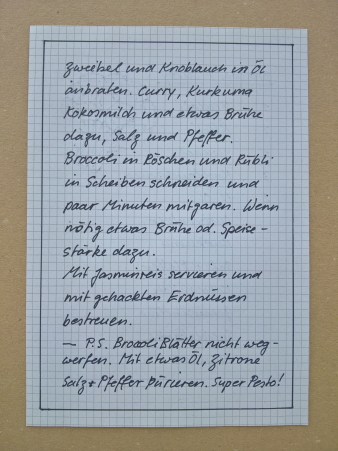 Zwiebel und Knoblauch in Öl
anbraten. Curry, Kurkuma
Kokosmilch und etwas Brühe
dazu, Salz und Pfeffer.
Broccoli in Röschen und Rübli
in Scheiben schneiden und
paar Minuten mitgaren. Wenn
nötig etwas Brühe od. Speise-
stärke dazu.
Mit Jasminreis servieren und
mit gehackten Erdnüssen
bestreuen.
— P.S. Broccoli Blätter nicht weg-
werfen. Mit etwas Öl, Zitrone
Salz + Pfeffer pürieren. Super Pesto!